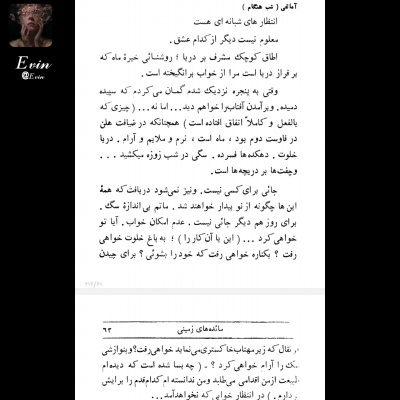 Evin
@Evin
آمالفی ( شب هنگام )
انتظار های شبانه ای هست
معلوم نیست دیگر از کدام عشق .
اطاق کوچک مشرف بر دریا ؛ روشنائی خیرهٔ ماه که
بر فراز دریا است مرا از خواب برانگیخته است .
وقتی به پنجره نزدیک شدم گمان می‌کردم که سپیده
دمیده . وبر آمدن آفتاب را خواهم دید... اما نه ... ( چیزی که
بالفعل و کاملاً اتفاق افتاده است ) همچنانکه در ضیافت هلن
در فاوست دوم بود ، ماه است ، نرم و ملایم و آرام . دریا
خلوت . دهکده‌ها فسرده . سگی در شب زوزه میکشید ...
وچفت‌ها بر دریچه‌ها است .
جائی برای کسی نیست . ونیز نمی‌شود دریافت که همهٔ
این ها چگونه از نو بیدار خواهند شد . ماتم بی اندازهٔ سگ .
برای روز هم دیگر جائی نیست . عدم امکان خواب . آیا تو
خواهی کرد ... ( این یا آن کار را ) ؛ به باغ خلوت خواهی
رفت ؟ بکناره خواهی رفت که خود را بشوئی ؟ برای چیدن
مائده‌های زمینی
۶۳
پرتقال که زیر مهتاب خاکستری می‌نماید خواهی رفت؟ وبنوازشی
سگ را آرام خواهی کرد ؟ . ( چه بسا شده است که دیده‌ام
طبیعت از من اقدامی می‌طلبد ومن ندانسته ام کدام قدم را برایش
بردارم . ) در انتظار خوابی که نخواهد آمد...